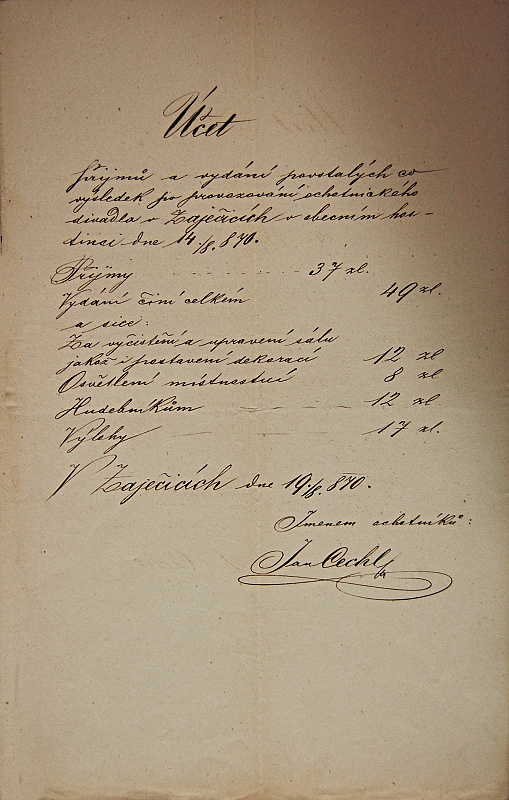 Účet
Příjmů a vydání povstalých co
výsledek po provozování ochotnického
divadla v Zaječicích v obecním hos-
tinci dne 14./8. 870.
Příjmy - - - - - - 37 zl.
Vydání činí celkem 49 zl.
a sice:
Za vyčistění a upravení sálu
jakož i postavení dekorací 12 zl
Osvětlení místností 8 zl
Hudebníkům 12 zl
Výlohy 17 zl.
V Zaječicích dne 19./8. 870.
Jmenem ochotníků:
Jan Cechl